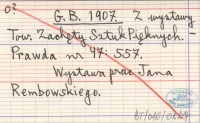 o?
G. B. 1907. Z wystawy
Tow. Zachęty Sztuk Pięknych. -
Prawda nr 47: 557.
Wystawa prac Jana
Rembowskiego.